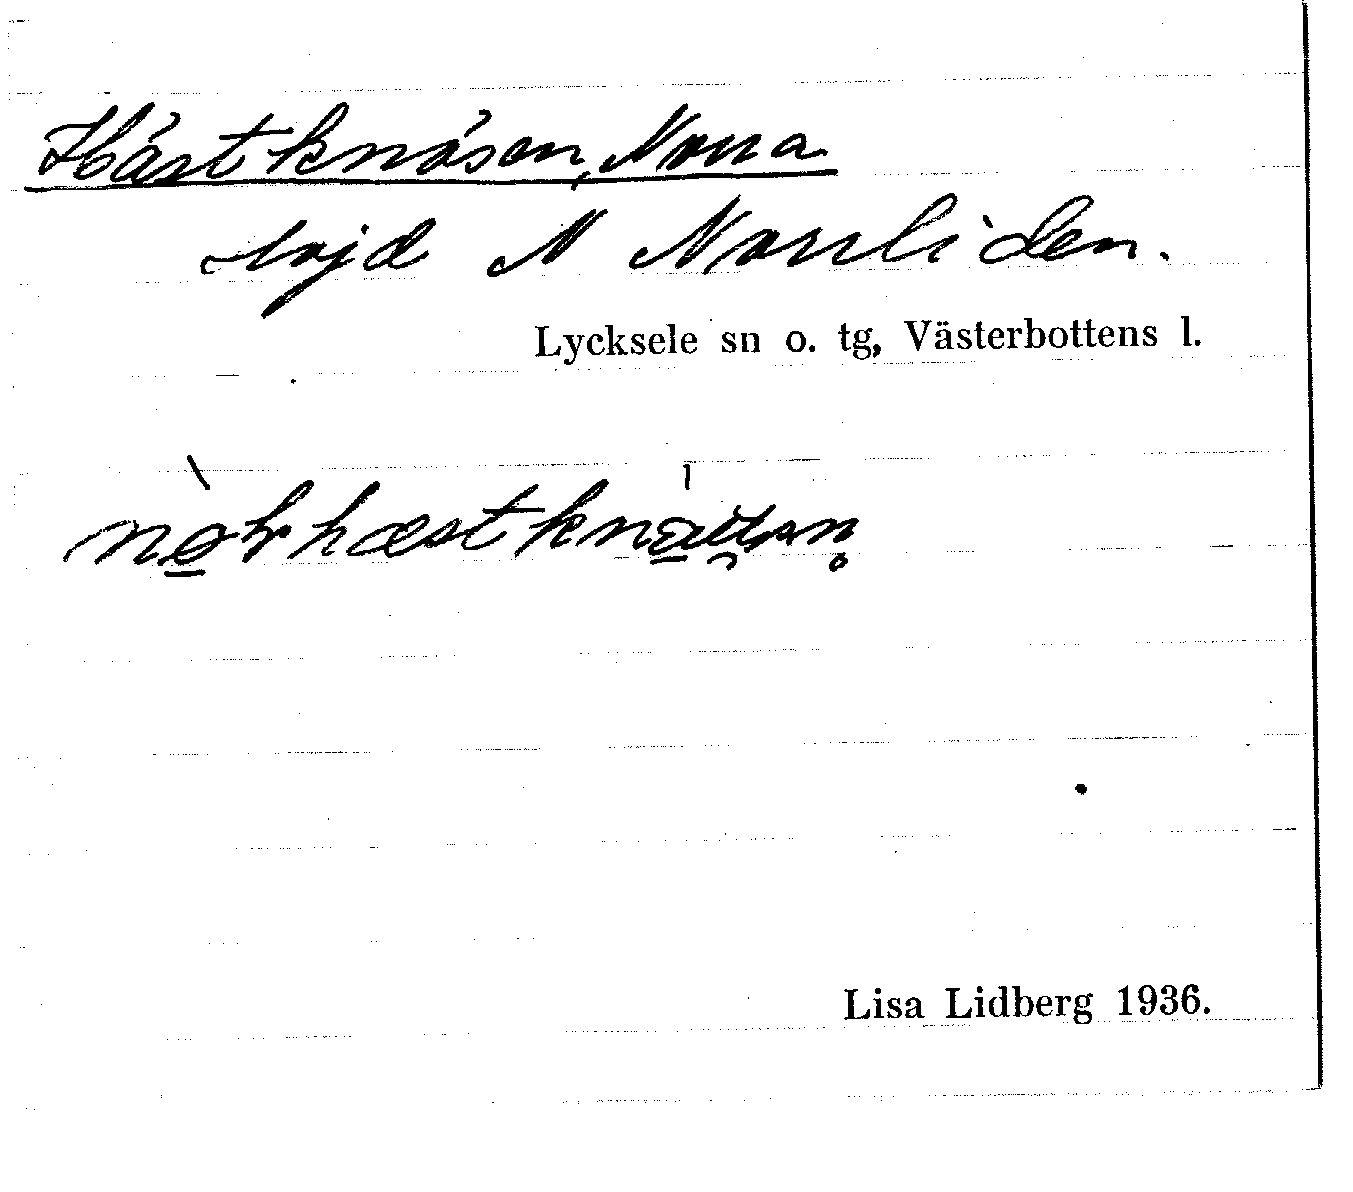 Hästknösen, Norra
höjd N Norrliden.
Lycksele sn o. tg, Västerbottens l.
Lisa Lidberg 1936.